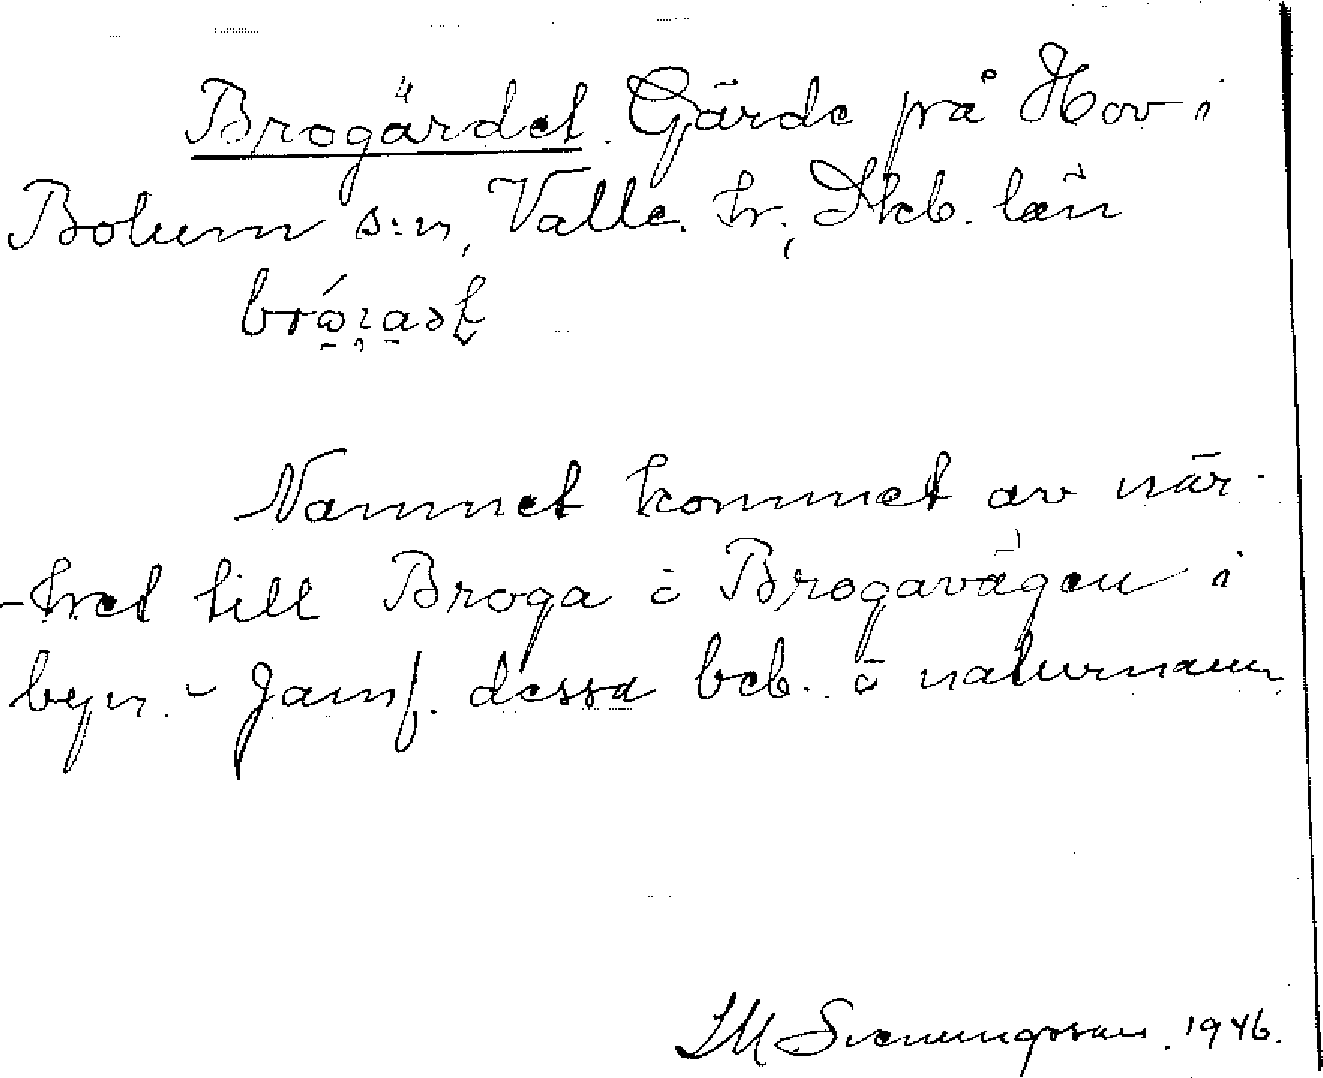 Brogärdet. Gärde på Hov i
Bolum s:n, Valle hr, Skb. län
Namnet kommet av när-
-het till Broga o Brogavägen i
byn. - Jämf. dessa beb. o naturnamn
Svenungsson. 1946.